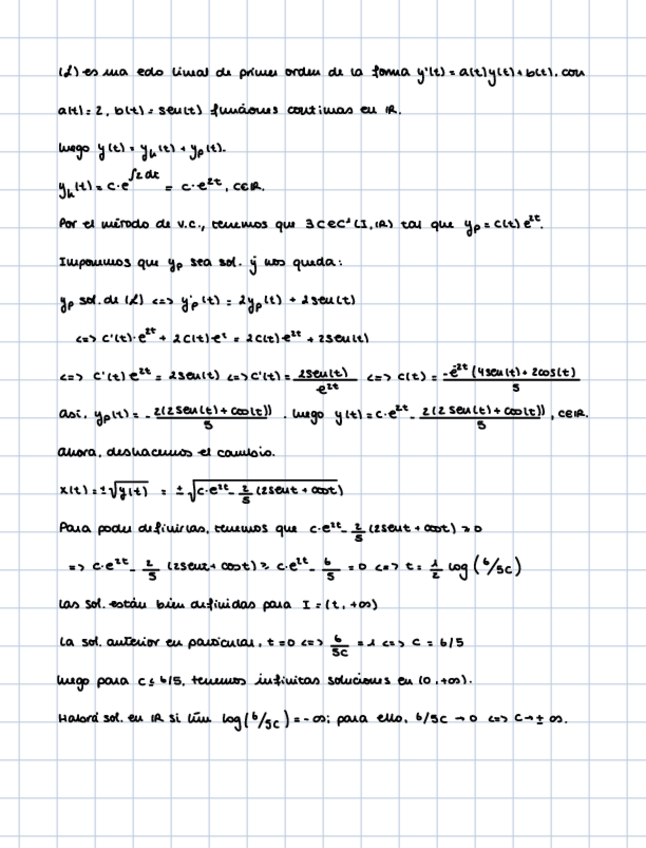 (L) es una edo lineal de primer orden de la forma y'(t) = a(t)y(t) + b(t), con
a(t) = 2, b(t) = sen(t) funciones continuas en IR.
luego y(t) = y_h(t) + y_p(t).
y_h(t) = c·e^{∫2dt} = c·e^{2t}, c∈IR.
Por el método de v.c., tenemos que ∃ C∈C¹(I,IR) tal que y_p = C(t)e^{2t}.
Imponemos que y_p sea sol. y nos queda:
y_p sol. de (L) <=> y'_p(t) = 2y_p(t) + 2sen(t)
<=> C'(t)·e^{2t} + 2C(t)e^t = 2C(t)e^{2t} + 2sen(t)
<=> C'(t)e^{2t} = 2sen(t) <=> C'(t) = 2sen(t)/e^{2t} <=> C(t) = -e^{2t}(4sen(t) + 2cos(t)/5
Así, y_p(t) = - 2(2sen(t) + cos(t))/5 . luego y(t) = c·e^{2t} - 2(2sen(t) + cos(t))/5, c∈IR.
Ahora, deshacemos el cambio.
x(t) = ±√y(t) = ±√(c·e^{2t} - 2/5 (2sent + cost)
Para poder definirlas, tenemos que c·e^{2t} - 2/5 (2sent + cost) > 0
=> c·e^{2t} - 2/5 (2sent + cost) ≥ c·e^{2t} - 6/5 = 0 <=> t = 1/2 log(6/5c)
Las sol. están bien definidas para I = (t, +∞)
La sol. anterior en particular, t = 0 <=> 6/5c = 1 <=> c = 6/5
luego para c ≤ 6/5, tenemos infinitas soluciones en (0, +∞).
Habrá sol. en IR si lim log(6/5c) = -∞; para ello, 6/5c → 0 <=> c → ± ∞.